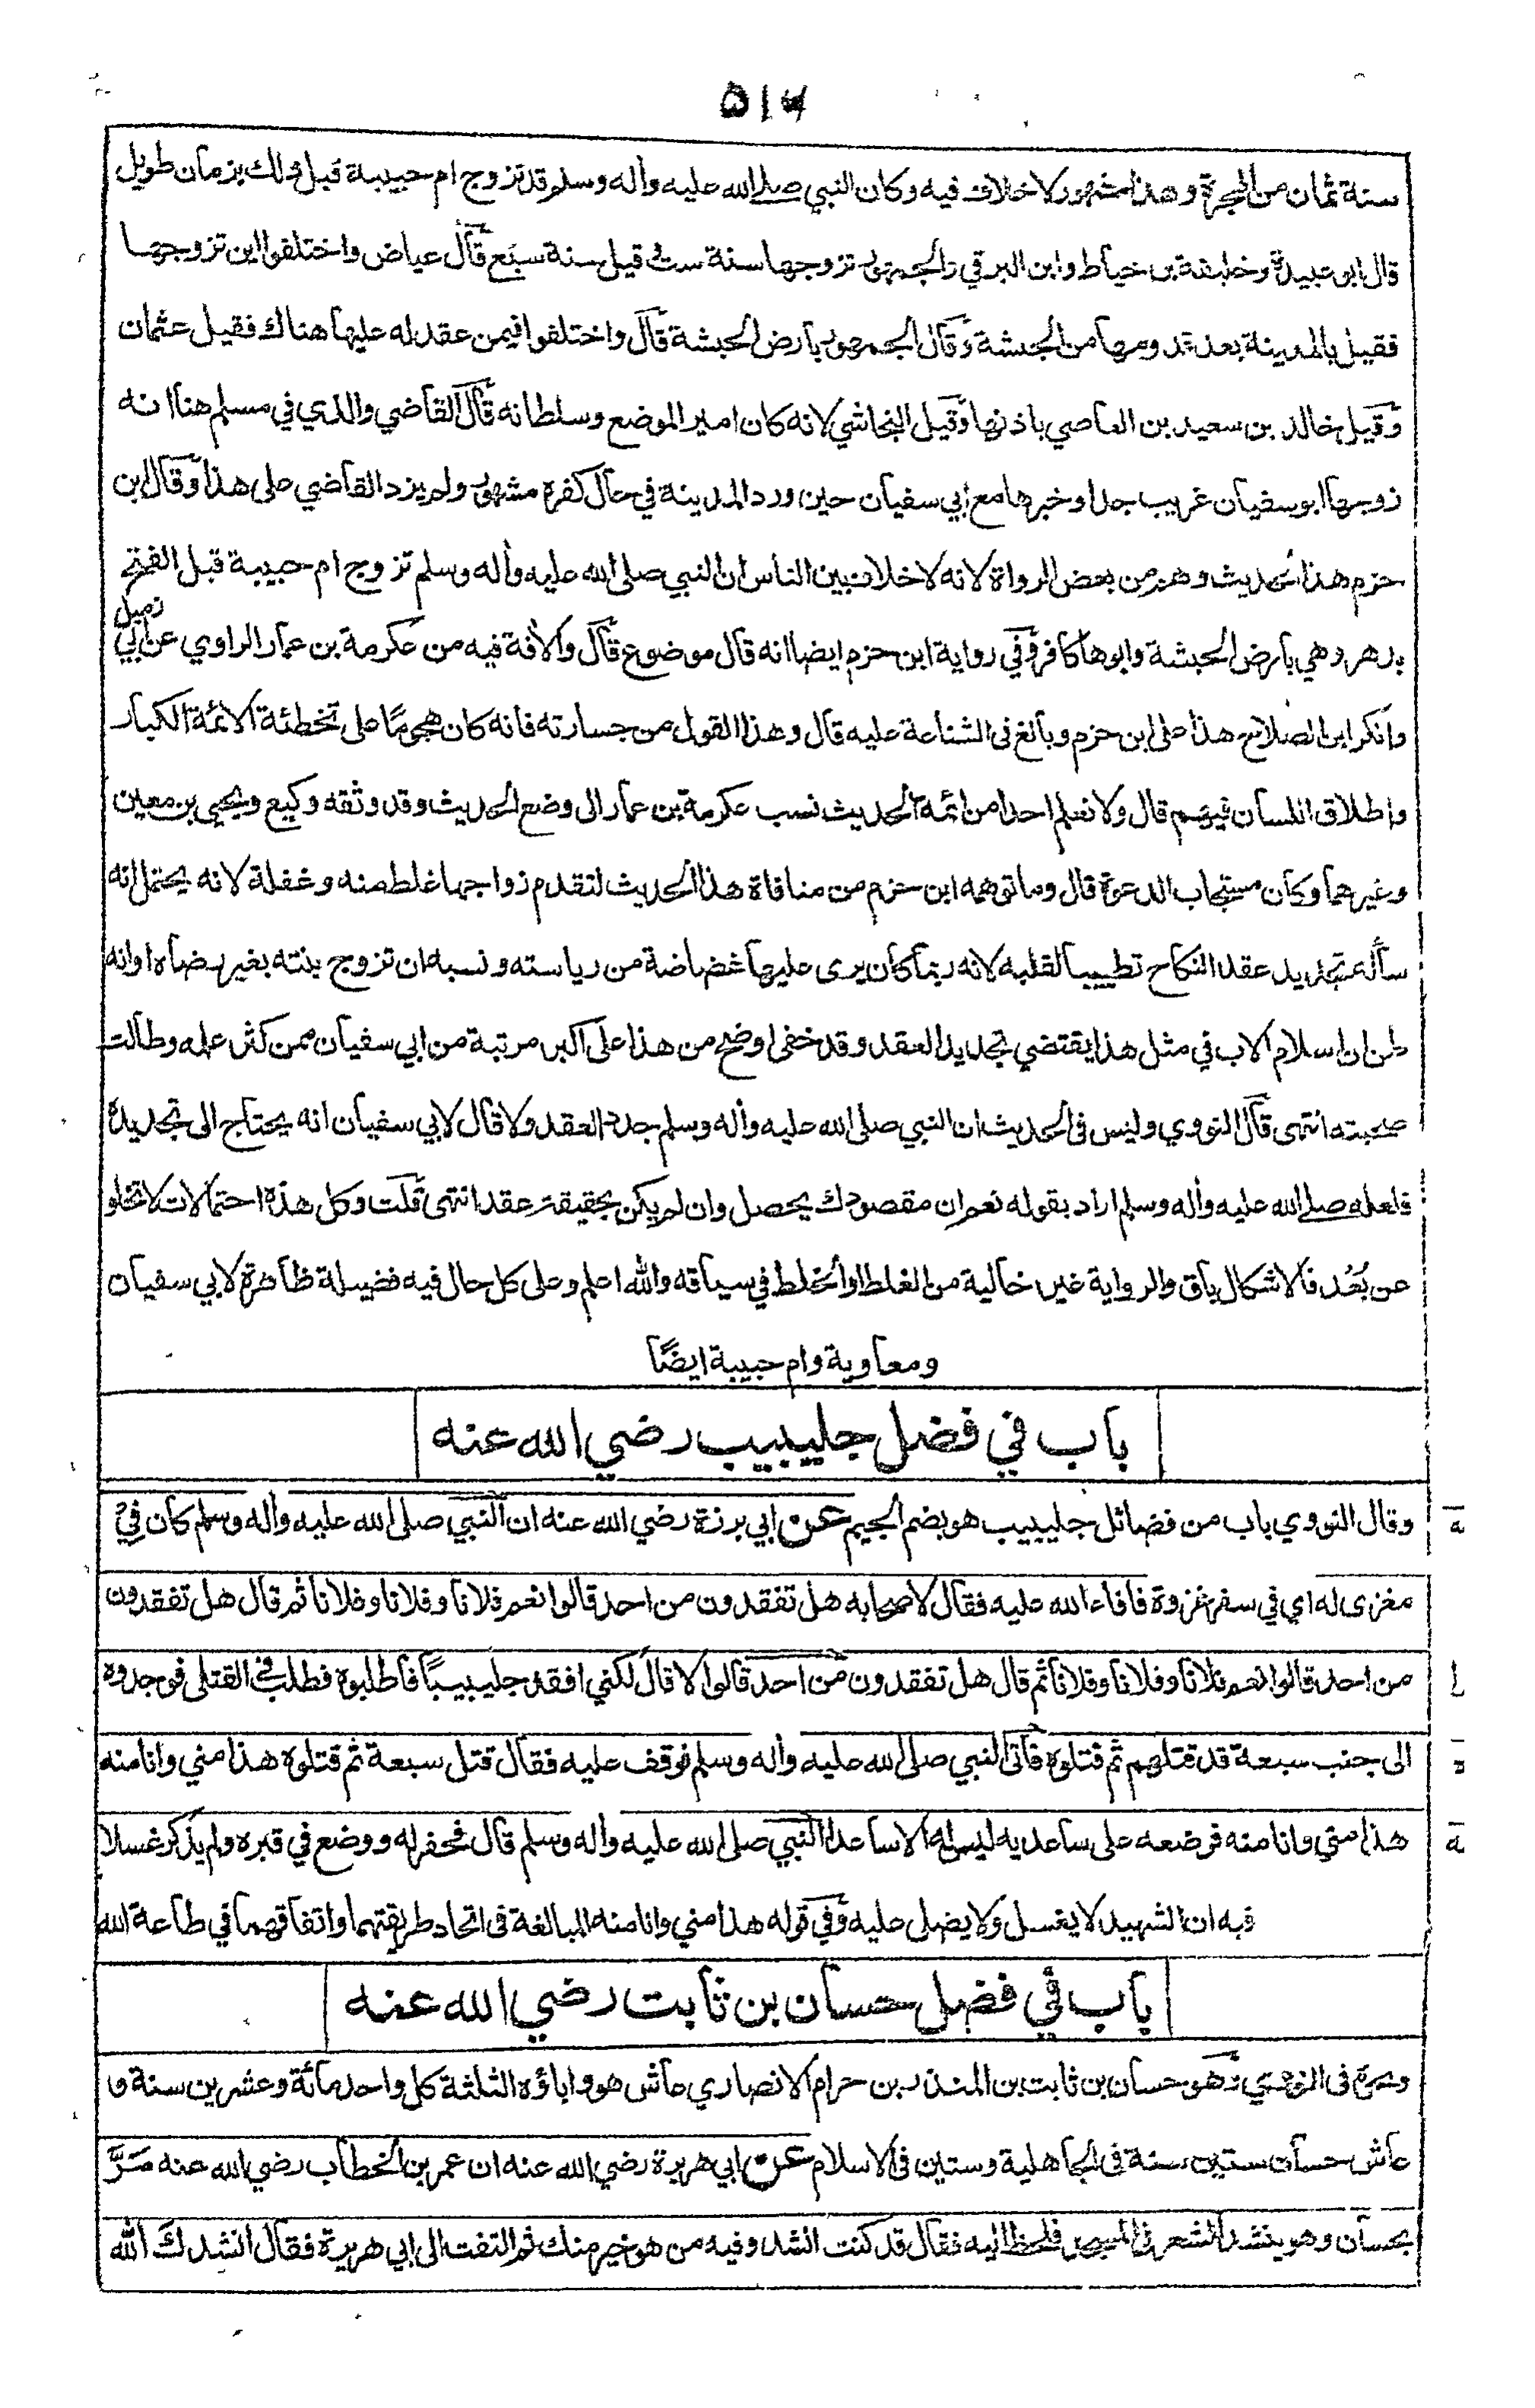 ٥١٧
سنة ثمان من الهجرة وهذا مشهور لا خلاف فيه وكان النبي صلى الله عليه وأله وسلم قد تزوج ام حبيبة قبل ذلك بزمان طويل
قال ابو عبيدة وخليفة بن خياط وابن البرقي والجمهور تزوجها سنة ست وقيل سنة سبع قال عياض واختلفوا اين تزوجها
فقيل بالمدينة بعد قدومها من الحبشة وقال الجمهور بارض الحبشة قال واختلفوا فيمن عقد له عليها هناك فقيل عثمان
وقيل خالد بن سعيد بن العاصي باذنها وقيل النجاشي لانه كان امير الموضع وسلطانه قال القاضي والذي في مسلم هنا انه
زوجها ابو سفيان غريب جدا وخبرها مع ابي سفيان حين ورد المدينة في حال كفره مشهور ولم يزد القاضي على هذا وقال ابن
حزم هذا الحديث وهم من بعض الرواة لانه لا خلاف بين الناس ان النبي صلى الله عليه وأله وسلم تزوج ام حبيبة قبل الفتح
بدهر وهي بارض الحبشة وابوها كافر وفي رواية ابن حزم ايضا انه قال موضوع قال والأفة فيه من عكرمة بن عمار الراوي عن ابي زميل
وانكر ابن الصلاح هذا على ابن حزم وبالغ في الشناعة عليه قال وهذا القول من جسارته فانه كان هجوما على تخطئة الائمة الكبار
واطلاق اللسان فيهم قال ولا نعلم احدا من ائمة الحديث نسب عكرمة بن عمار الى وضع الحديث وقد وثقه وكيع ويحيى بن معين
وغيرهما وكان مستجاب الدعوة قال وما توهمه ابن حزم من منافاة هذا الحديث لتقدم زواجها غلط منه وغفلة لانه يحتمل انه
سأله تجديد عقد النكاح تطييبا لقلبه لانه ربما كان يرى عليها غضاضة من رياسته ونسبه ان تزوج بنته بغير رضاه او انه
ظن ان اسلام الاب في مثل هذا يقتضي تجديد العقد وقد خفي اوضح من هذا على اكبر مرتبة من ابي سفيان ممن كثر علمه وطالت
صحبته انتهى قال النووي وليس في الحديث ان النبي صلى الله عليه وأله وسلم جدد العقد ولا قال لابي سفيان انه يحتاج الى تجديده
فلعله صلى الله عليه وأله وسلم اراد بقوله نعم ان مقصودك يحصل وان لم يكن بحقيقة عقد انتهى قلت وكل هذه احتمالات لا تخلو
عن بُعُد فالاشكال باق والرواية غير خالية من الغلط او الخلط في سياقه والله اعلم وعلى كل حال فيه فضيلة ظاهرة لابي سفيان
ومعاوية وام حبيبة ايضًا
باب في فضل جليبيب رضي الله عنه
وقال النووي باب من فضائل جليبيب هو بضم الجيم عن ابي برزة رضي الله عنه ان النبي صلى الله عليه وأله وسلم كان في
مغزى له اي في سفر غزوة فافاء الله عليه فقال لاصحابه هل تفقدون من احد قالوا نعم فلانا وفلانا وفلانا ثم قال هل تفقدون
من احد قالوا نعم فلانا وفلانا وفلانا ثم قال هل تفقدون من احد قالوا لا قال لكني افقد جليبيبًا فاطلبوه فطلب في القتلى فوجدوه
الى جنب سبعة قد قتلهم ثم قتلوه فاتى النبي صلى الله عليه وأله وسلم فوقف عليه فقال قتل سبعة ثم قتلوه هذا مني وانا منه
هذا مني وانا منه فوضعه على ساعديه ليس له الا ساعدا النبي صلى الله عليه وأله وسلم قال فحفر له ووضع في قبره ولم يذكر غسلا
فيه ان الشهيد لا يغسل ولا يصلى عليه وفي قوله هذا مني وانا منه المبالغة في اتحاد طريقتهما واتفاقهما في طاعة الله
باب في فضل حسان بن ثابت رضي الله عنه
ومثله في النووي وهو حسان بن ثابت بن المنذر بن حرام الانصاري عاش هو واباؤه الثلثة كل واحد مائة وعشرين سنة و
عاش حسان ستين سنة في الجاهلية وستين في الاسلام عن ابي هريرة رضي الله عنه ان عمر بن الخطاب رضي الله عنه مَرَّ
بحسان وهو ينشد الشعر في المسجد فلحظ اليه فقال قد كنت انشد وفيه من هو خير منك ثم التفت الى ابي هريرة فقال انشدك الله